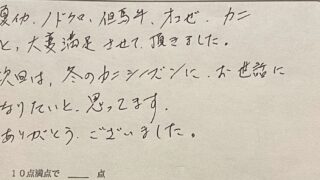 夏仍、ノドグロ、但馬牛、オコゼ、カニ
と、大変満足させて頂きました。
次回は、冬のカニシーズンに、お世話に
なりたいと、思ってます。
ありがとうございました。
10点満点で ____ 点